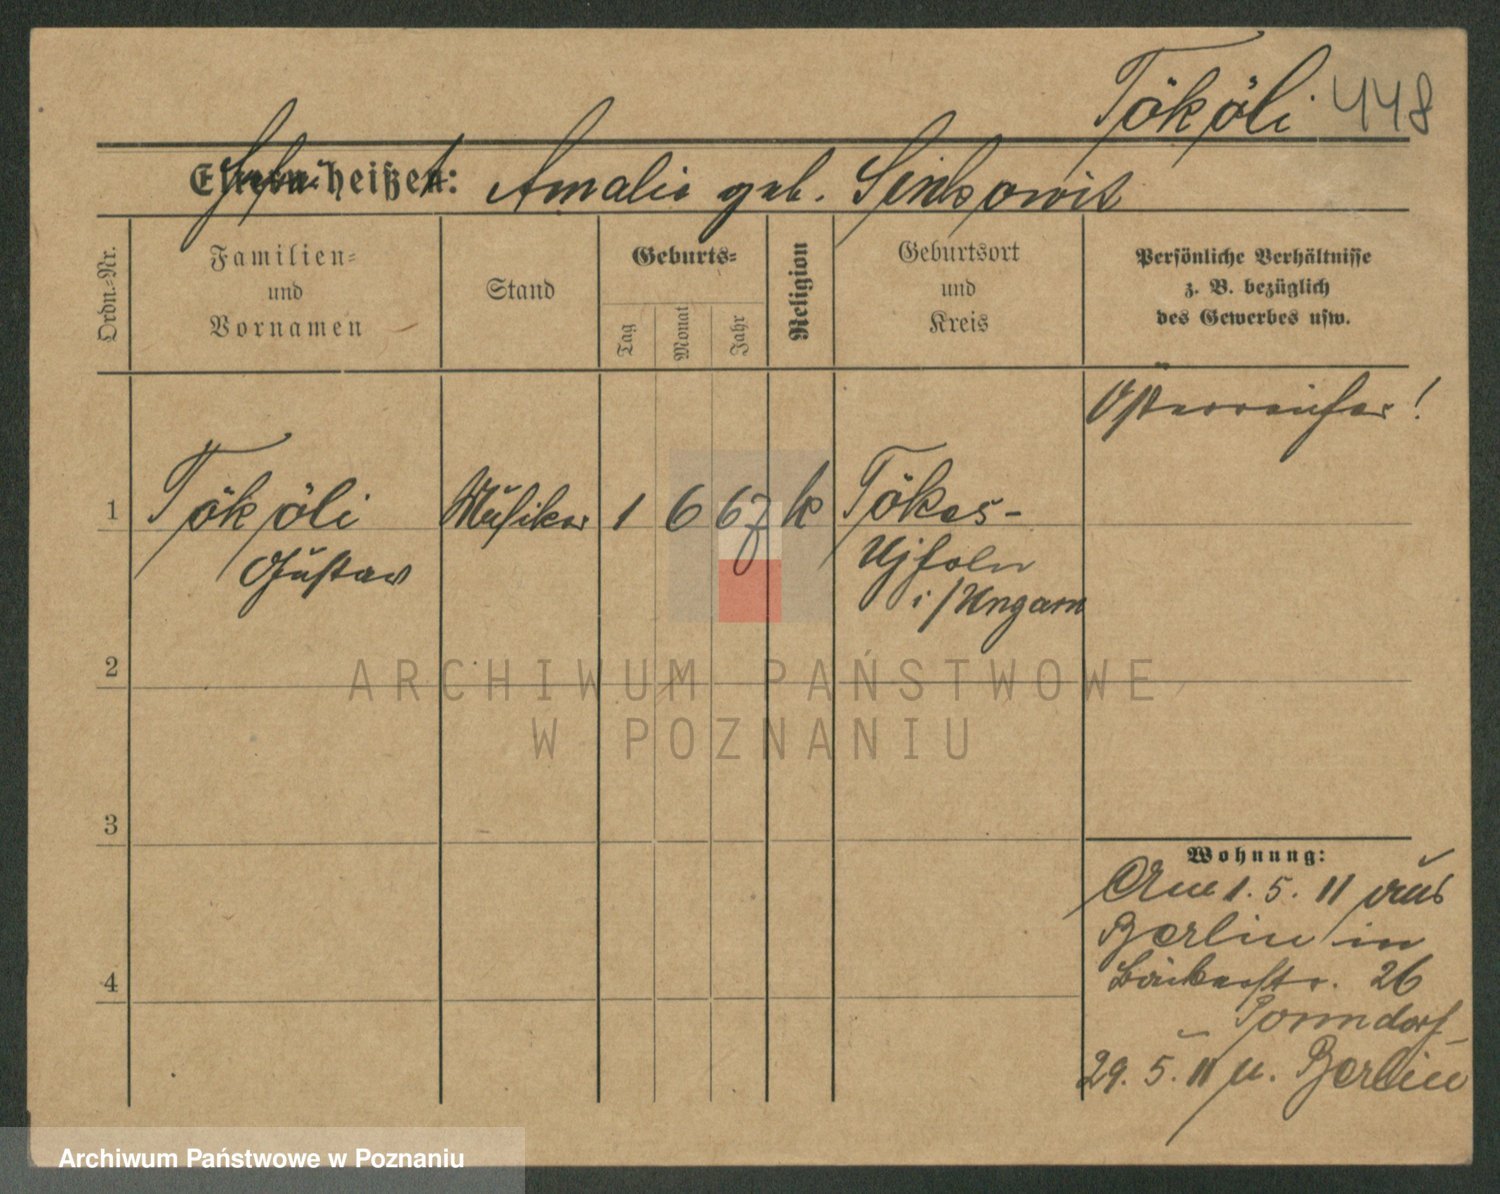 Tököli 448
Eltern heißen: Amalie geb. Sinkowit
Ordn.-Nr.
Familien-
und
Vornamen
Stand
Geburts-
Tag
Monat
Jahr
Religion
Geburtsort
und
Kreis
Persönliche Verhältnisse
z. B. bezüglich
des Gewerbes usw.
Österreicher!
1 Tököli Musiker 1 6 67 k Tökes-
Gustav Ujfolu
i/Ungarn
2
3
4
Wohnung:
Am 1. 5. 11 aus
Berlin in
Bäckerstr. 26
Porndorf
29. 5. 11 n. Berlin
ARCHIWUM PAŃSTWOWE
W POZNANIU
Archiwum Państwowe w Poznaniu